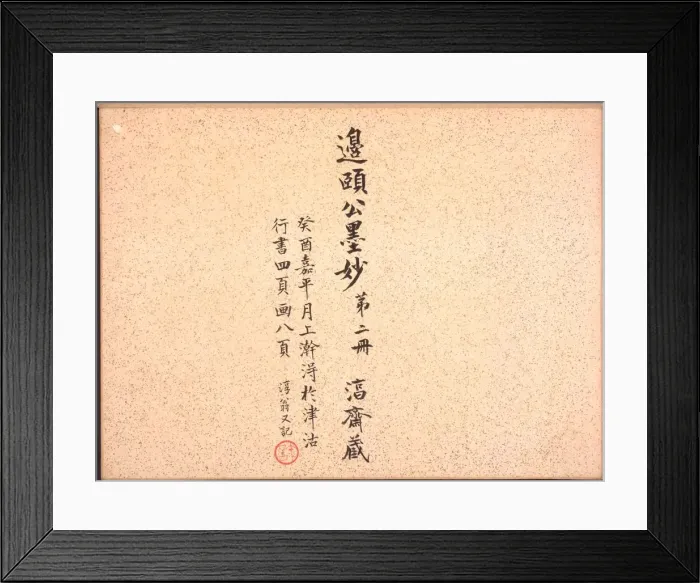 邊頤公墨妙 第二冊 㵙齋藏
癸酉嘉平月上澣淂於津沽
行書四頁画八頁 淳翁又記